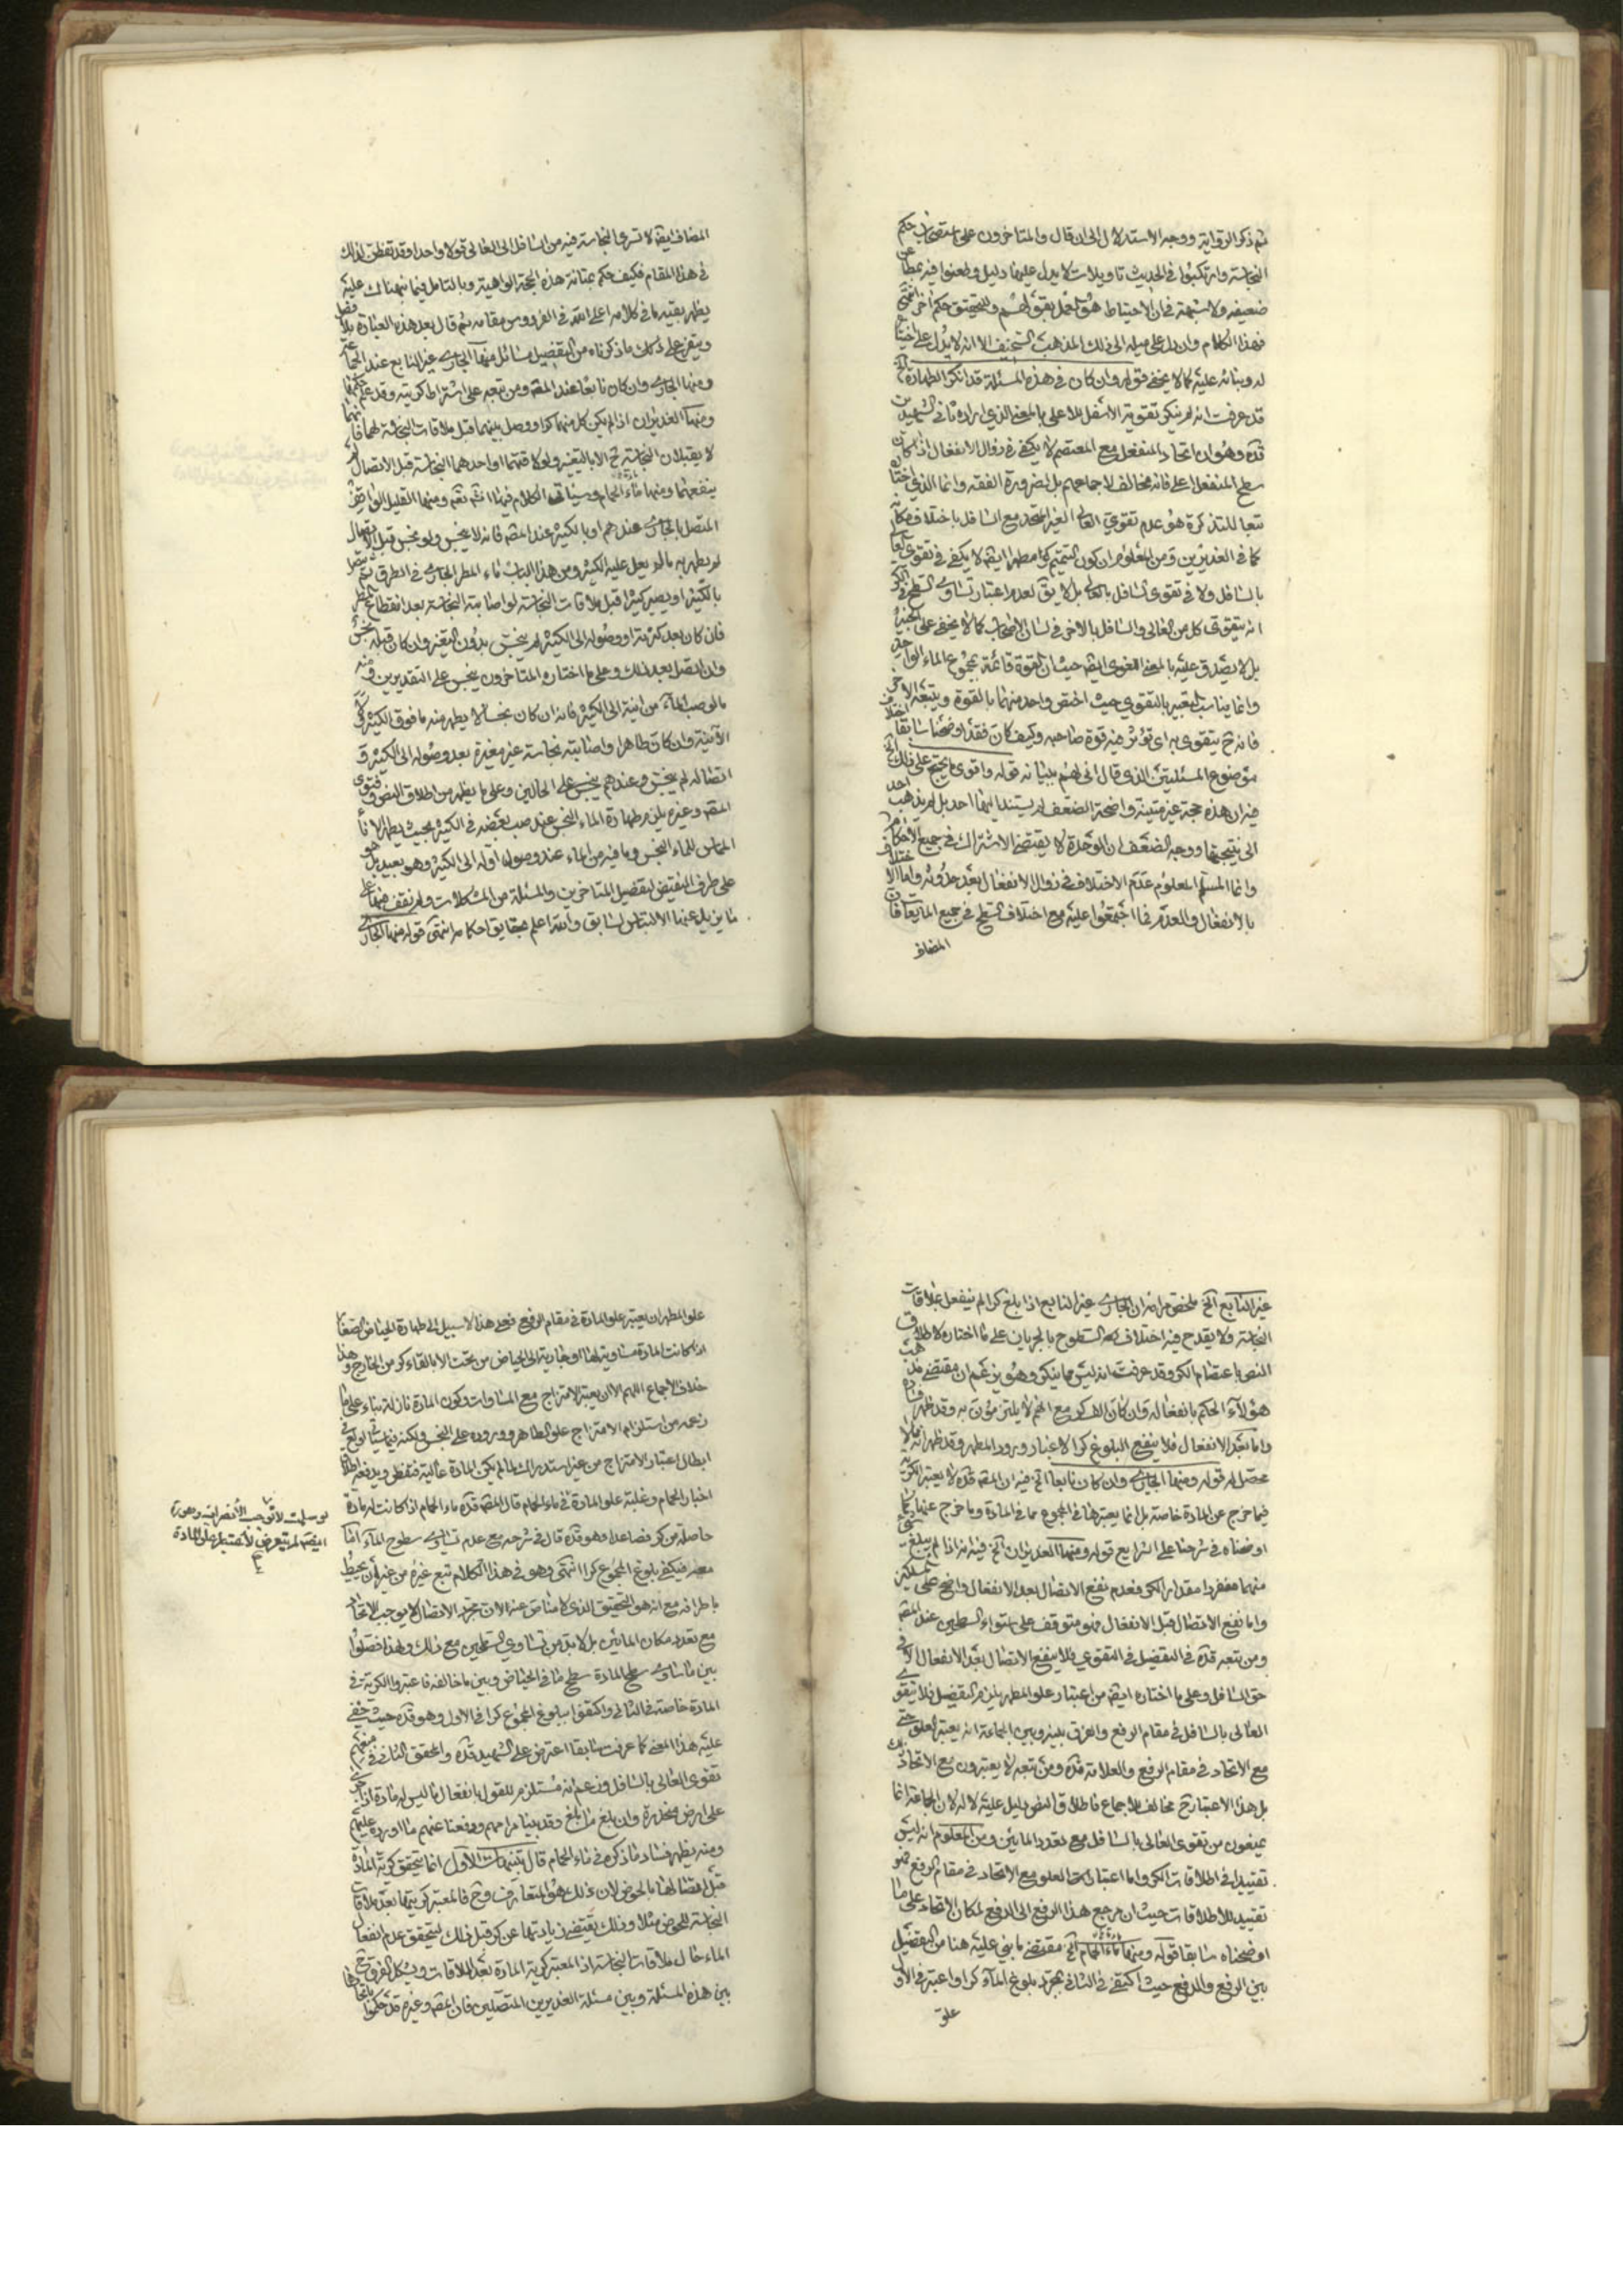 ثم ذكر الرواية ووجه الاستدلال الى ان قال والمتاخرون على استصحاب حكم
النجاسة وارتكبوا في الحديث تاويلات لا يدل عليها دليل وطعنوا فيه بمطاعن
ضعيفه ولا شبهة في ان الاحتياط هو العمل بقولهم وللتحقيق حكم اخر انتهى
فهذا الكلام وان دل على ميله الى ذلك المذهب السخيف الا انه لا يدل على اختياره
له وبنائه عليه كما لا يخفى قوله وان كان في هذه المسئلة قد انكر الطهارة الخ
قد عرفت انه لم ينكر تقوية الاسفل للاعلى بالمعنى الذي اراده ثاني الشهيدين
قده وهو ان اتحاد المنفعل مع المعتصم لا يكفي في زوال الانفعال اذا كان
سطح المنفعل اعلى فانه مخالف لاجماعهم بل لضرورة الفقه وانما الذي اختاره
تبعا للتذكرة هو عدم تقوي العالي الغير المتحد مع السافل باختلاف مكانه
كما في الغديرين ومن المعلوم ان كون المتمم كرا مطهرا ايضا لا يكفي في تقوي العالي
بالسافل ولا في تقوى السافل بالعالي بل لا بد لعدم اعتبار تساوي السطح في الكر
انه يتقوى كل من العالي والسافل بالاخر في لسان الاصحاب كما لا يخفى على الخبير
بل لا يصدق عليه بالمعنى اللغوي ايضا حيث ان القوة قائمة بمجموع الماء الواحد
وانما يناسب التعبير بالتقوي حيث اختص واحد منهما بالقوة ويتبعه الاخر
فانه ح يتقوى به اي تؤثر فيه قوة صاحبه وكيف كان فقد اوضحنا سابقا اختلاف
موضوع المسئلتين الذي قال اني لهم ببيانه قوله واقوى ما يحتج على ذلك الخ
فيه ان هذه حجة غير متينة واضحة الضعف لم يستند اليها احد بل لم يذهب احد
الى نتيجتها ووجه الضعف ان الوحدة لا يقتضى الاشتراك في جميع الاحكام
وانما المسلم المعلوم عدم الاختلاف في زوال الانفعال بعد حدوثه واما الاختلاف
بالانفعال والعدم فما اجتمعوا عليه مع اختلاف السطح في جميع المايعات فان
المضاف
المضاف ايضا لا تسري النجاسة فيه من السافل الى العالي قولا واحدا وقد تفطن لذلك
في هذا المقام فكيف حكم بمتانة هذه الحجة الواهية وبالتامل فيما نبهناك عليه
يظهر بقية ما في كلامه اعلى الله في الفردوس مقامه ثم قال بعد هذه العبارة بلا فصل
ويتفرع على ذلك ما ذكرناه من التفصيل مسائل منها الجاري غير النابع عند الجماعة
ومنها الجاري وان كان نابعا عند المصه ومن تبعه على اشتراط كريته وقد علم حكمها
ومنها الغديران اذا لم يكن كل منهما كرا ووصل بينهما قبل ملاقات النجاسة لهما فانهما
لا يقبلان النجاسة ح الا بالتغير ولو لاقتهما او احدهما النجاسة قبل الاتصال لم
ينفعهما ومنها ماء الحمام وسياتي الكلام فيها انشم تعه ومنها القليل الواقف
المتصل بالجاري عندهم او بالكثير عند المصه فانه لا ينجس ولو نجس قبل الاتصال
لم يطهر به ما لم يعل عليه الكثير ومن هذا الباب ماء المطر الجاري في الطرق ثم يتصل
بالكثير او يصير كثيرا قبل ملاقات النجاسة لو اصابته النجاسة بعد انقطاع المطر
فان كان بعد كثرته او وصوله الى الكثير لم ينجس بدون التغير وان كان قبله نجس
وان اتصل بعد ذلك وعلى ما اختاره المتاخرون ينجس على التقديرين ومنه
ما لو صب الماء من انية الى الكثير فانه ان كان نجسا لا يطهر منه ما فوق الكثير في
الآنية وان كان طاهرا واصابته نجاسة غير مغيرة بعد وصوله الى الكثير و
اتصاله لم ينجس وعندهم ينجس على الحالين وعلى ما يظهر من اطلاق النص وفتوى
المصه وغيره يلزم طهارة الماء النجس عند صب بعضه في الكثير بحيث يطهر الاناء
المماس للماء النجس وما فيه من الماء عند وصول اوله الى الكثير وهو بعيد بل هو
على طرف النقيض لتفصيل المتاخرين والمسئلة من المشكلات ولم نقف فيها على
ما يزيل عنها الالتباس السابق والله اعلم بحقايق احكامه انتهى قوله منها الجاري
غير النابع الخ ملخص مرامه ان الجاري غير النابع اذا بلغ كرا لم ينفعل بملاقات
النجاسة ولا يقدح فيه اختلاف السطوح بالجريان على ما اختاره لاطلاق
النص باعتصام الكر وقد عرفت انه ليس مما ينكر وهو يزعم ان مقتضى مذهب
هؤلاء الحكم بانفعاله وان كان الف كر مع انهم لا يلتزمون به وقد ظهر فساده
واما بعد الانفعال فلا ينفع البلوغ كرا لاعتبار ورود المطهر وقد ظهر انه مما لا
محصل له قوله ومنها الجاري وان كان نابعا الخ فيه ان المصه قده لا يعتبر الكرية
فيما خرج عن المادة خاصة بل انما يعتبرها في المجموع مما في المادة وما خرج عنها كما
اوضحناه في شرحنا على الشرايع قوله ومنها الغديران الخ فيه انه اذا لم يبلغ شيء
منهما منفردا مقدار الكر فعدم نفع الاتصال بعد الانفعال واضح على المسلكين
واما نفع الاتصال قبل الانفعال فهو متوقف على استواء السطحين عند المصه
ومن تبعه قده في التفصيل في التقوي فلا ينفع الاتصال بعد الانفعال الا في
حق السافل وعلى ما اختاره ايضا من اعتبار علو المطهر يلزمه التفصيل فلا يتقوى
العالي بالسافل في مقام الرفع والفرق بينه وبين الجماعة انه يعتبر العلو حتى
مع الاتحاد في مقام الرفع والعلامة قده ومن تبعه لا يعتبرون مع الاتحاد ذلك
بل هذا الاعتبار ح مخالف للاجماع فاطلاق النص دليل عليه لا له لان الجماعة انما
يمنعون من تقوى العالي بالسافل مع تعدد المائين ومن المعلوم انه ليس
تقييدا في اطلاقات الكر واما اعتبار العلو مع الاتحاد في مقام الرفع فهو
تقييد للاطلاقات حيث ان مرجع هذا الرفع الى الدفع لمكان الاتحاد على ما
اوضحناه سابقا قوله ومنها ماء الحمام الخ مقتضى ما بني عليه هنا من التفصيل
بين الرفع والدفع حيث اكتفى في الثاني بمجرد بلوغ الماء كرا واعتبر في الاول
علو
علو المطهر ان يعتبر علو المادة في مقام الرفع فعلى هذا لا سبيل الى طهارة الحياض الصغار
اذا كانت المادة مساوية لها او جارية الى الحياض من تحت الا بالقاء كر من الخارج وهذا
خلاف الاجماع اللهم الا ان يعتبر الامتزاج مع المساوات وكون المادة نازلة بناء على ما
زعمه من استلزام الامتزاج علو الطاهر ووروده على النجس ولكنه فيما سياتي لم يعن في
ابطال اعتبار الامتزاج من غير استدراك لما لم يكن المادة عالية فتفطن ويدفعه اطلاق
اخبار الحمام وغلبة علو المادة في ماء الحمام قال المصه قده ماء الحمام اذا كانت له مادة
حاصلة من كر فصاعدا وهو قده قال في شرحه مع عدم تساوي سطوح الماء اما
معه فيكفي بلوغ المجموع كرا انتهى وهو في هذا الكلام تبع غيره من غير ان يحيط
باطرافه مع انه هو التحقيق الذي لا مناص عنه لان مجرد الاتصال لا يوجب الاتحاد
مع تعدد مكان المائين بل لا بد من تساوي السطحين مع ذلك ولهذا فصلوا
بين ما ساوى سطح المادة سطح ما في الحياض وبين ما خالفه فاعتبروا الكرية في
المادة خاصة في الثاني واكتفوا ببلوغ المجموع كرا في الاول وهو قده حيث خفي
عليه هذا المعنى كما عرفت سابقا اعترض على الشهيد قده والمحقق الثاني في منعهم
تقوى العالي بالسافل وزعم انه مستلزم للقول بانفعال ما ليس له مادة اذا جرى
على ارض منحدرة وان بلغ ما بلغ وقد بينا مرامهم ودفعنا عنهم ما اورده عليهم
ومنه يظهر فساد ما ذكره في ماء الحمام قال تنبيهات الاول انما يتحقق كرية المادة
قبل اتصالها بالحوض لان ذلك هو المتعارف وح فالمعتبر كريتها بعد ملاقات
النجاسة للحوض مثلا وذلك يقتضي زيادتها عن كر قبل ذلك ليتحقق عدم انفعال
الماء حال ملاقات النجاسة اذ المعتبر كرية المادة بعد الملاقات ويشكل الفرق ح
بين هذه المسئلة وبين مسئلة الغديرين المتصلين فان المصه وغيره قد حكموا باتحادها
ايضا لم يتعرض لاشتراط علو المادة